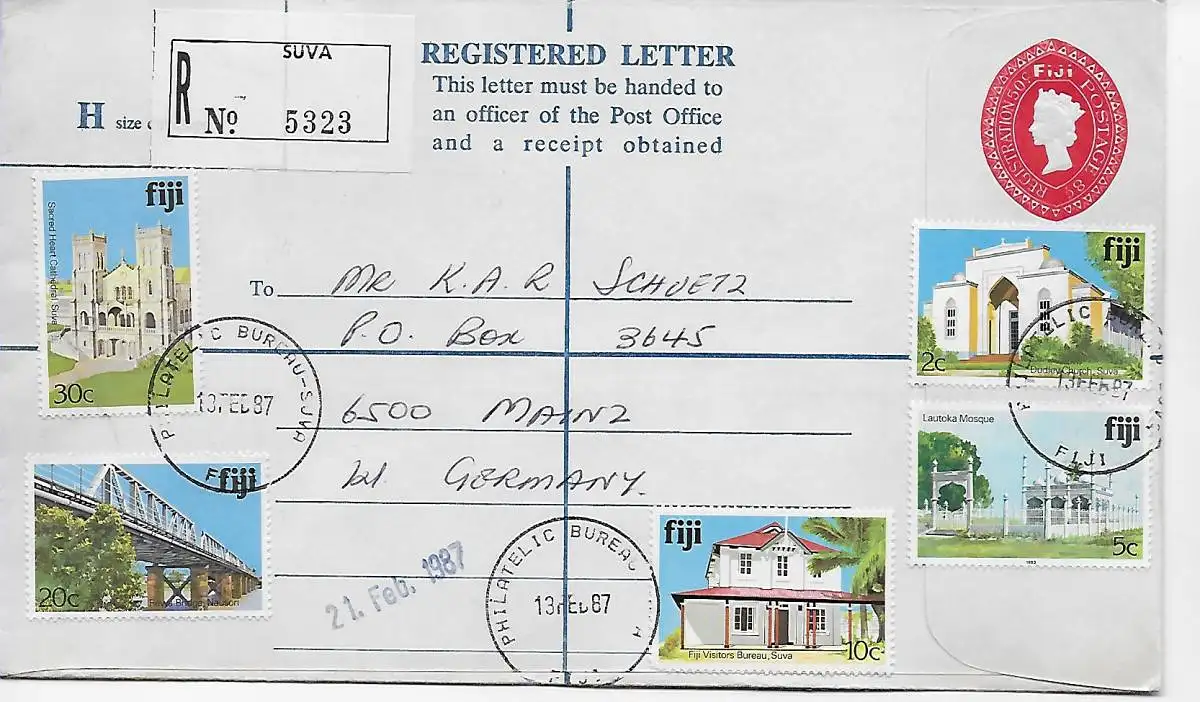 SUVA
R
No. 5323
H size
REGISTERED LETTER
This letter must be handed to
an officer of the Post Office
and a receipt obtained
FIJI
REGISTRATION 50c POSTAGE 8c
fiji
Sacred Heart Cathedral, Suva
30c
fiji
2c
Dudley Church, Suva
To MR K.A.R SCHUETZ
P.O. Box 3645
6500 MAINZ
W. GERMANY.
PHILATELIC BUREAU-SUVA
13 FEB 87
FIJI
13 FEB 87
FIJI
Lautoka Mosque
fiji
5c
1983
fiji
20c
Rewa Bridge, Nausori
21. Feb. 1987
PHILATELIC BUREAU
13 FEB 87
FIJI
fiji
Fiji Visitors Bureau, Suva
10c